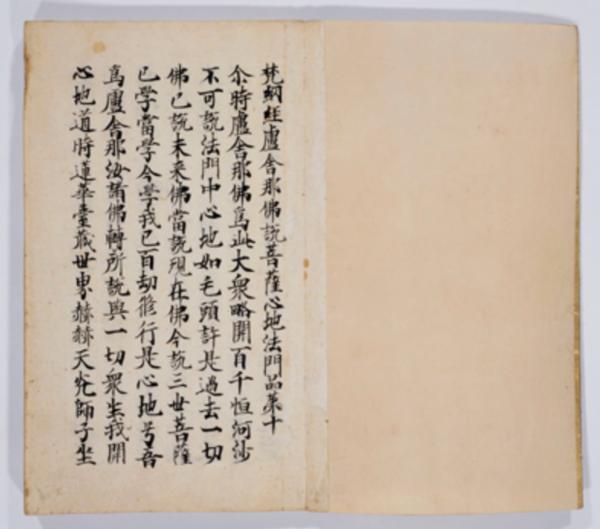 梵網經盧舍那佛說菩薩心地法門品第十
尒時盧舍那佛為此大衆略開百千恒河沙
不可說法門中心地如毛頭許是過去一切
佛已說未來佛當說現在佛今說三世菩薩
已學當學今學我已百劫修行是心地号吾
為盧舍那汝諸佛轉所說與一切衆生我開
心地道時蓮華臺藏世界赫赫天光師子坐